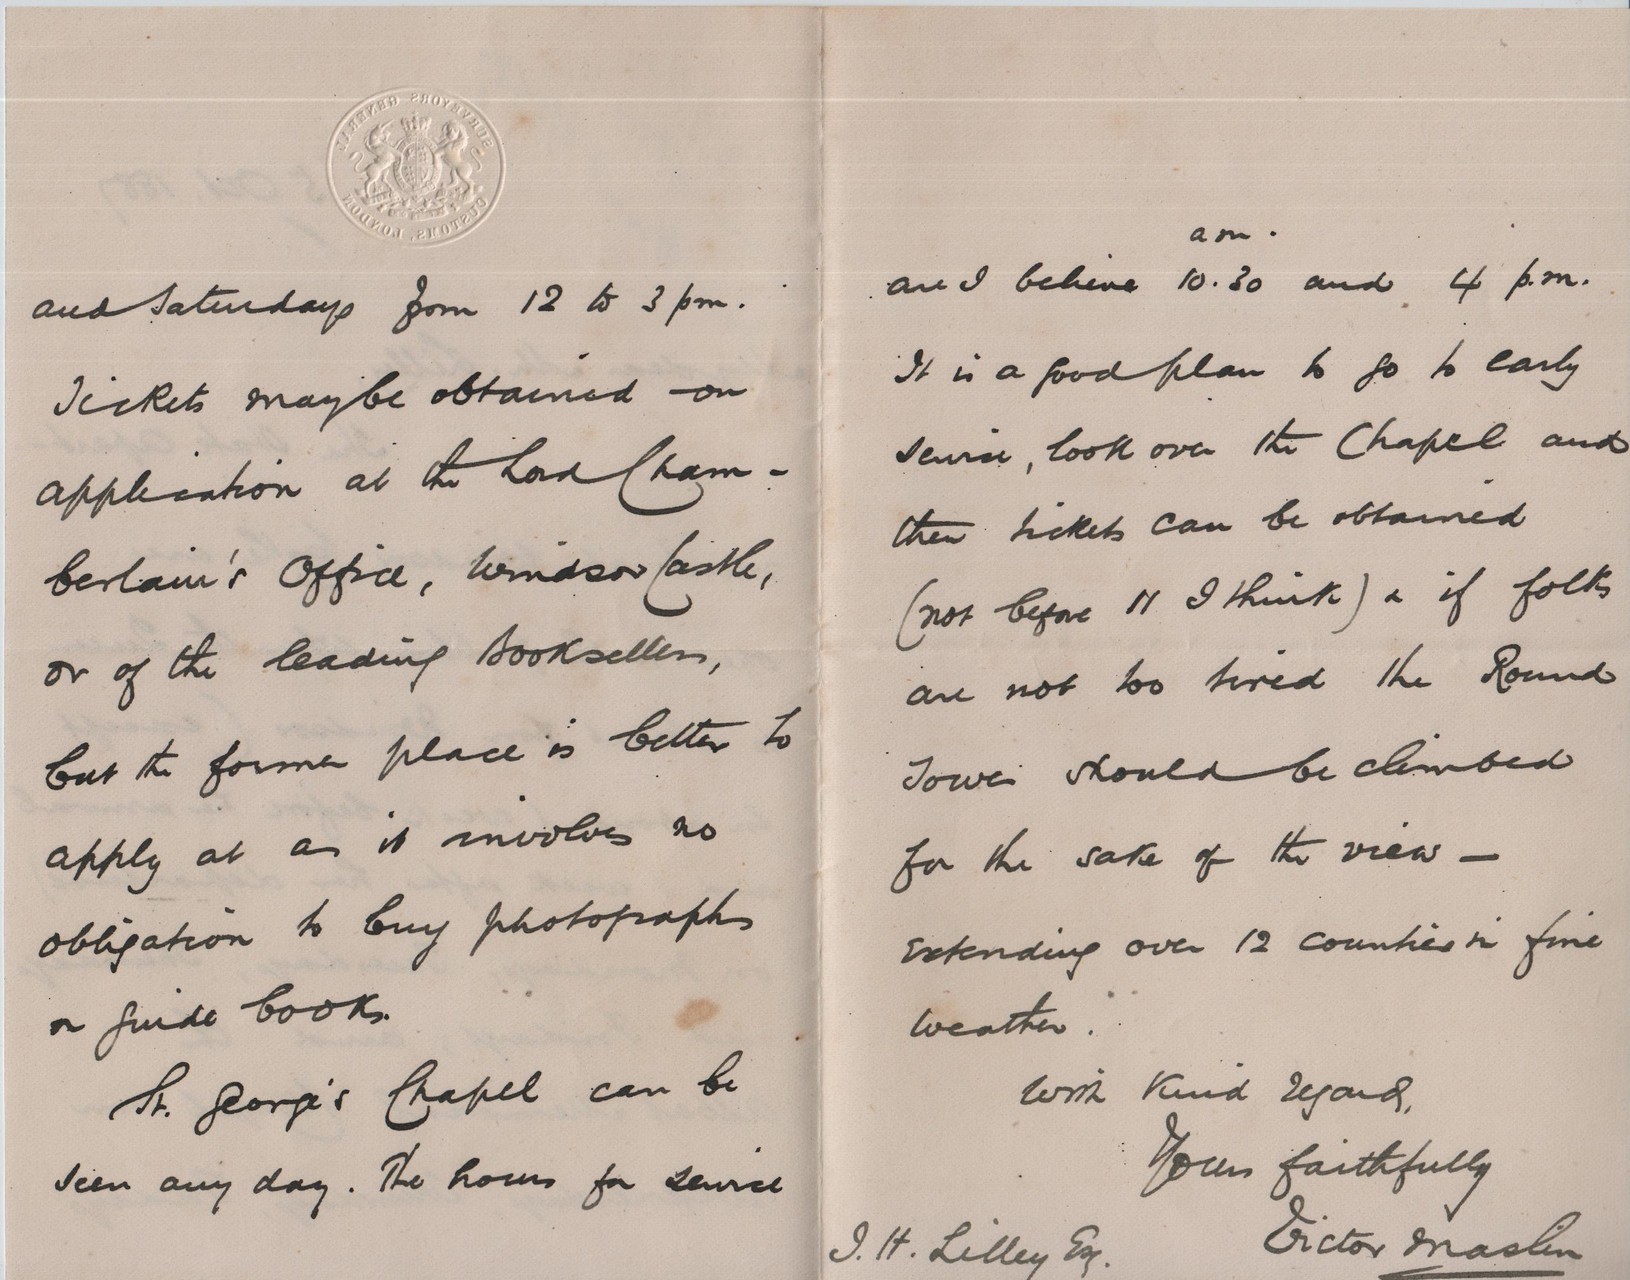 SURVEYORS GENERAL
CUSTOMS, LONDON
and Saturdays from 12 to 3 pm.
Tickets may be obtained on
application at the Lord Cham-
berlain's Office, Windsor Castle,
or of the leading Booksellers,
but the former place is better to
apply at as it involves no
obligation to buy photographs
or guide books.
St. George's Chapel can be
seen any day. The hours for service
are I believe 10.30 am. and 4 p.m.
It is a good plan to go to early
service, look over the Chapel and
then tickets can be obtained
(not before 11 I think) & if folks
are not too tired the Round
Tower should be climbed
for the sake of the view —
extending over 12 counties in fine
weather.
With kind regards,
Yours faithfully
Victor Maslin
J. H. Lilley Esq.